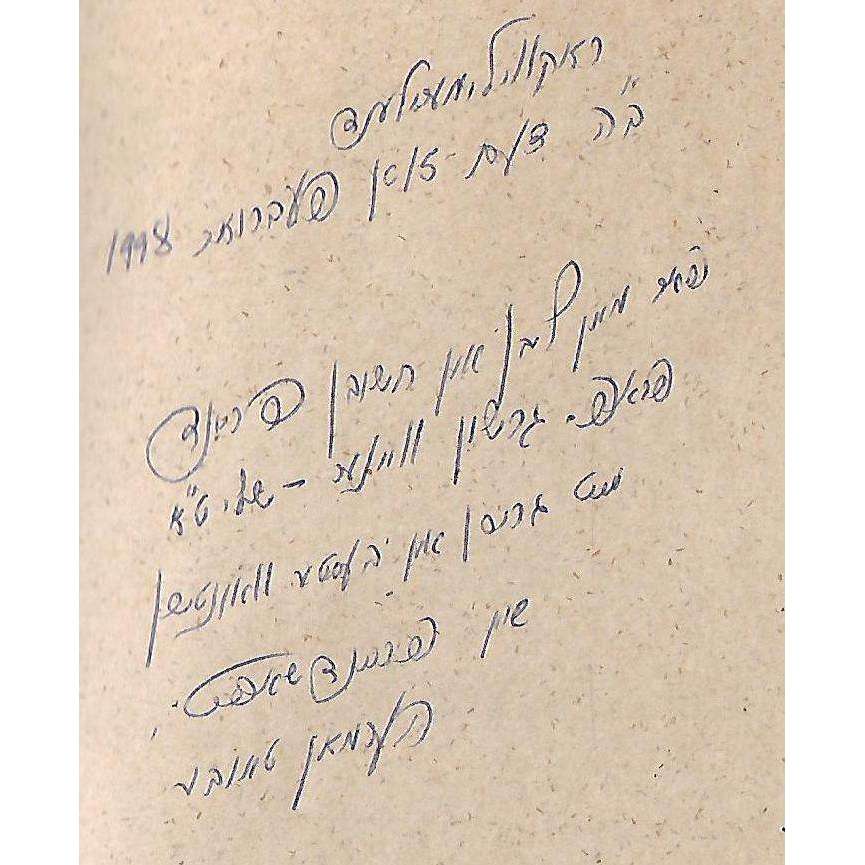 ראקוויל, מערילענד
ב"ה דעם 7טן פעברואר 1998
פאר מיין ליבן און חשובן פריינד
פראפ. גרשון וויינער – שליט"א
מיט גרוסן און בעסטע וואונטשן
אין פריינדשאפט,
הערמאן טאובע